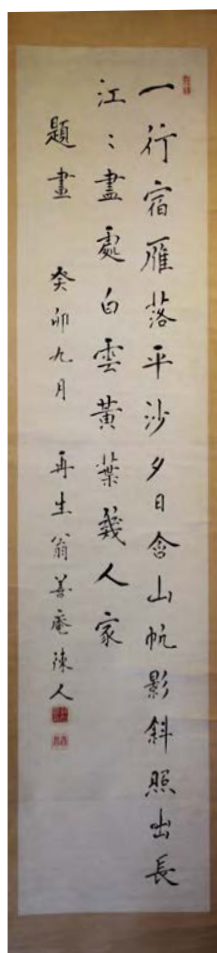 一行宿雁落平沙夕日含山帆影斜照出長
江〻盡處白雲黃葉幾人家
題畫 癸卯九月 再生翁 庵陳人